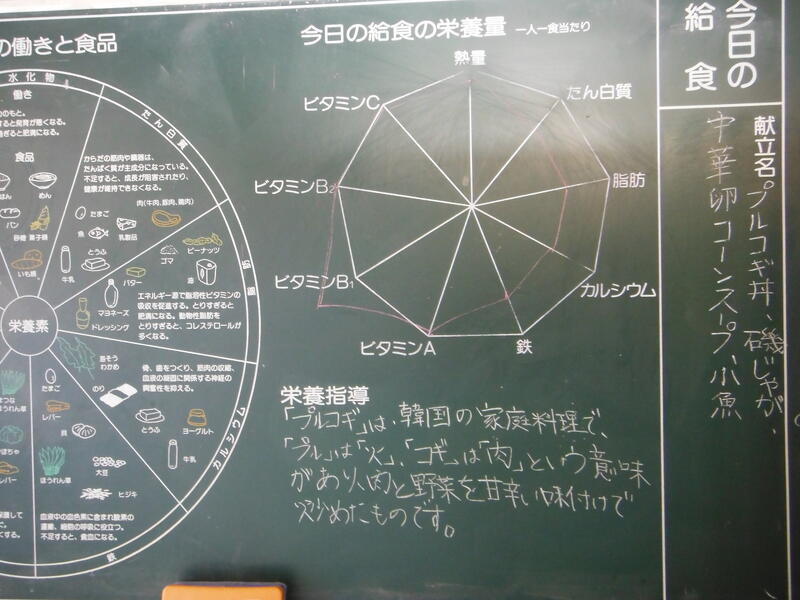 の働きと食品
水化物
働き
食品
めん
パン
砂糖 菓子類
いも類
たん白質
からだの筋肉や臓器は、
たんぱく質が主成分になっている。
不足すると、成長が阻害されたり、
健康が維持できなくなる。
肉(牛肉、豚肉、鶏肉)
たまご
魚
乳製品
とうふ
牛乳
ゴマ
ピーナッツ
バター
油
マヨネーズ
ドレッシング
エネルギー源で脂溶性ビタミンの
吸収を促進する。とりすぎると
肥満になる。動物性脂肪を
とりすぎると、コレステロールが
多くなる。
脂肪
栄養素
わかめ
のり
骨、歯をつくり、筋肉の収縮、
血液の凝固に関係する神経の
興奮性を抑える。
とうふ
ヨーグルト
牛乳
カルシウム
たまご
レバー
貝
ほうれん草
大豆
ヒジキ
血液中の血色素に含まれ酸素の
運搬、細胞の呼吸に役立つ。
不足すると、貧血になる。
鉄
今日の給食の栄養量 一人一食当たり
熱量
たん白質
脂肪
カルシウム
鉄
ビタミンA
ビタミンB1
ビタミンB2
ビタミンC
栄養指導
「プルコギ」は、韓国の家庭料理で、
「プル」は「火」、「コギ」は「肉」という意味
があり、肉と野菜を甘辛い味付けで
炒めたものです。
今日の
給食
献立名
プルコギ丼、磯じゃが、
中華卵コーンスープ、小魚